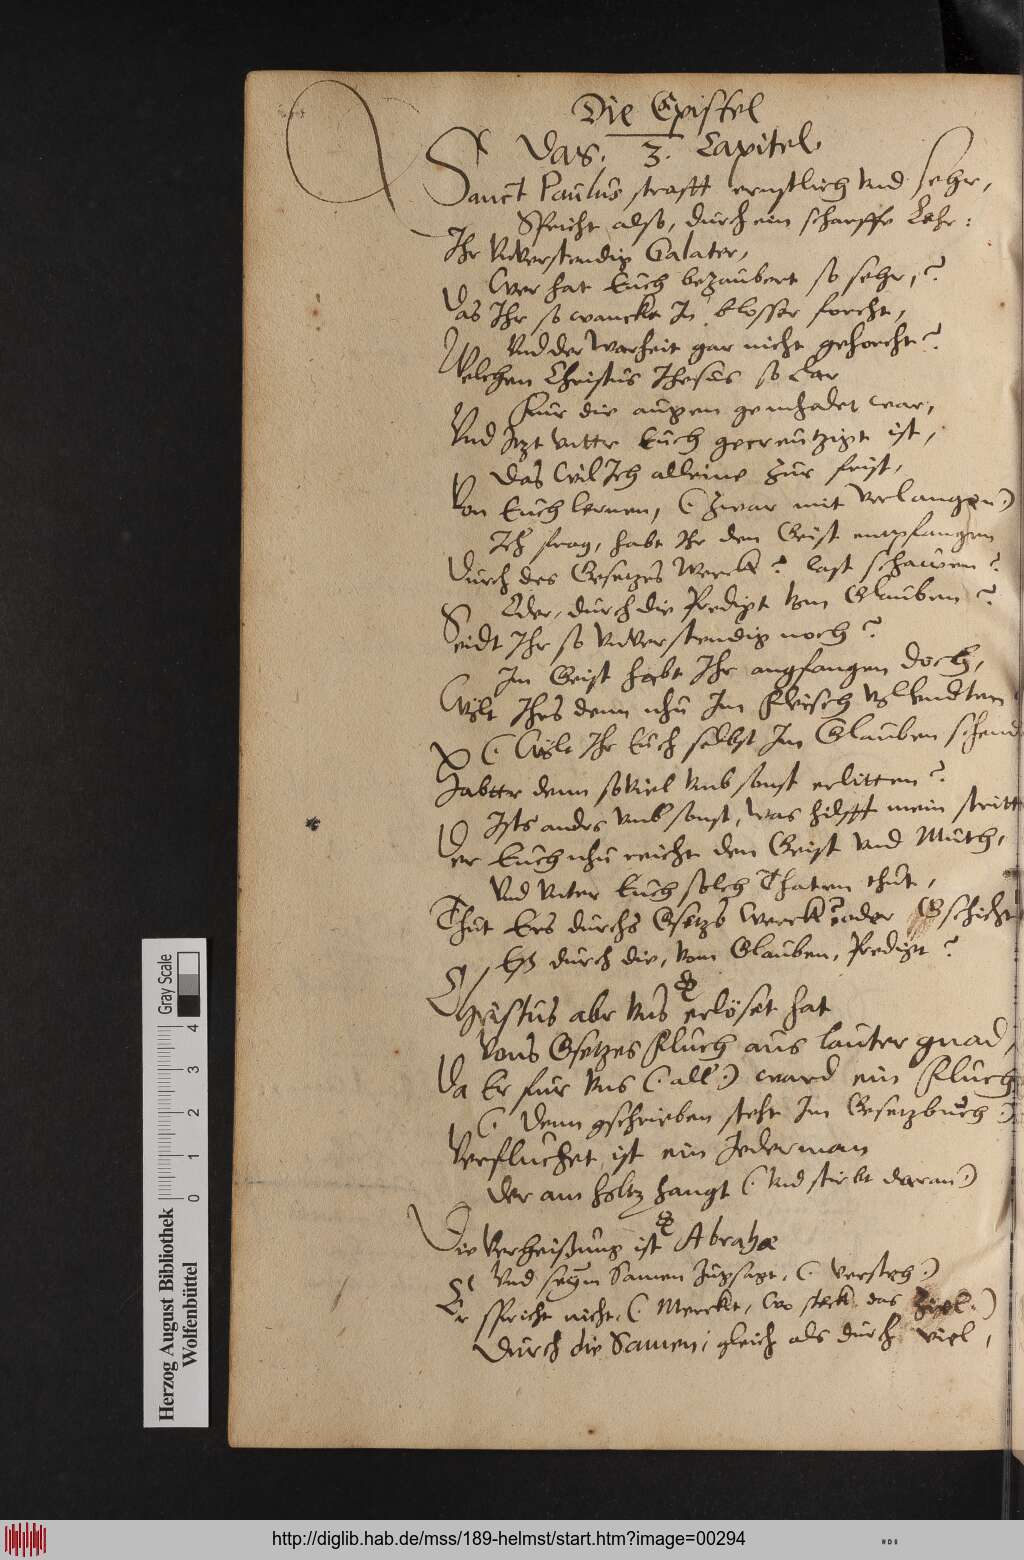 Die Epistel
Das. 3. Capitel.
Sanct Paulus strafft ernstlich Vnd sehr,
Spricht also, durch ein scharffe Lehr:
Ihr Vnverstendig Galater,
Wer hat Euch bezaubert so sehr,?
Das Ihr so wanckt In blosser forcht,
Vnd der Warheit gar nicht gehorcht?
Welchen Christus Ihesus so clar
Fur die augen gemhalet war,
Vnd Itzt vntter Euch gecreutzigt ist,
Das Wil Ich alleine zur frist,
Von Euch lernen, (: Zwar mit Verlangen:)
Ich frag, habt Ihr den Geist empfangen
Durch des Gesetzes Werck? last schawen?
Oder, durch die Predigt Vom Glauben?
Seidt Ihr so Vnverstendig noch?
Im Geist habt Ihr angfangen doch,
Wolt Ihrs denn nhu Im Fleisch
(: Wolt Ihr Euch selbst Im Glauben
Habttr denn soviel Vmb sonst erlitten?
Ists anders Vmb sonst, was hilfft mein
Der Euch nhu reicht den Geist Vnd Muth,
Vnd Vnter Euch solch Thaten thut,
Thut Ers durchs Gsetzs Werck? oder Gschicht
durch die, Vom Glauben, Predigt?
Christus abr Vns erlöset hat
Vons Gsetzes Fluch aus lauter gnad,
Da Er fur Vns (: all :) ward ein Fluch
(: Denn gschrieben steht Im Gesetzbuch :)
Verfluchet ist ein Jederman
Der am holtz hangt (: Vnd stirbt daran :)
Die Verheissung ist Abrahæ
Vnd seym Samen Zugsagt, (: Versteh :)
Er spricht nicht, (: Merckt, Wo steckt das Ziel :)
Durch die Samen, gleich als durch viel,
Gray Scale
0 1 2 3 4
Herzog August Bibliothek
Wolfenbüttel
http://diglib.hab.de/mss/189-helmst/start.htm?image=00294